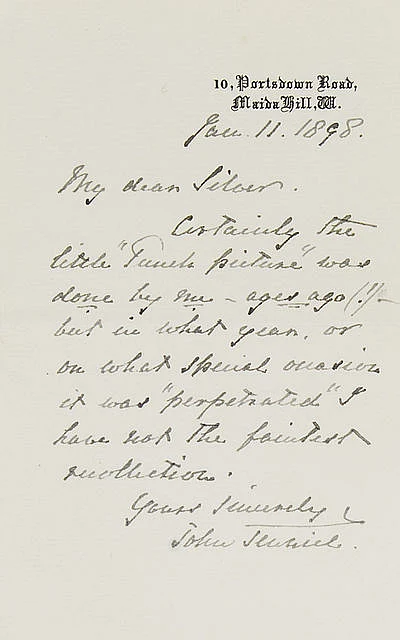 10, Portsdown Road,
Maida Hill, W.
Jan. 11. 1898.
My dear Silver.
Certainly the
little "Punch picture" was
done by me - ages ago (!) -
but in what year, or
on what special occasion
it was "perpetrated" I
have not the faintest
recollection.
Yours sincerely
John Tenniel.